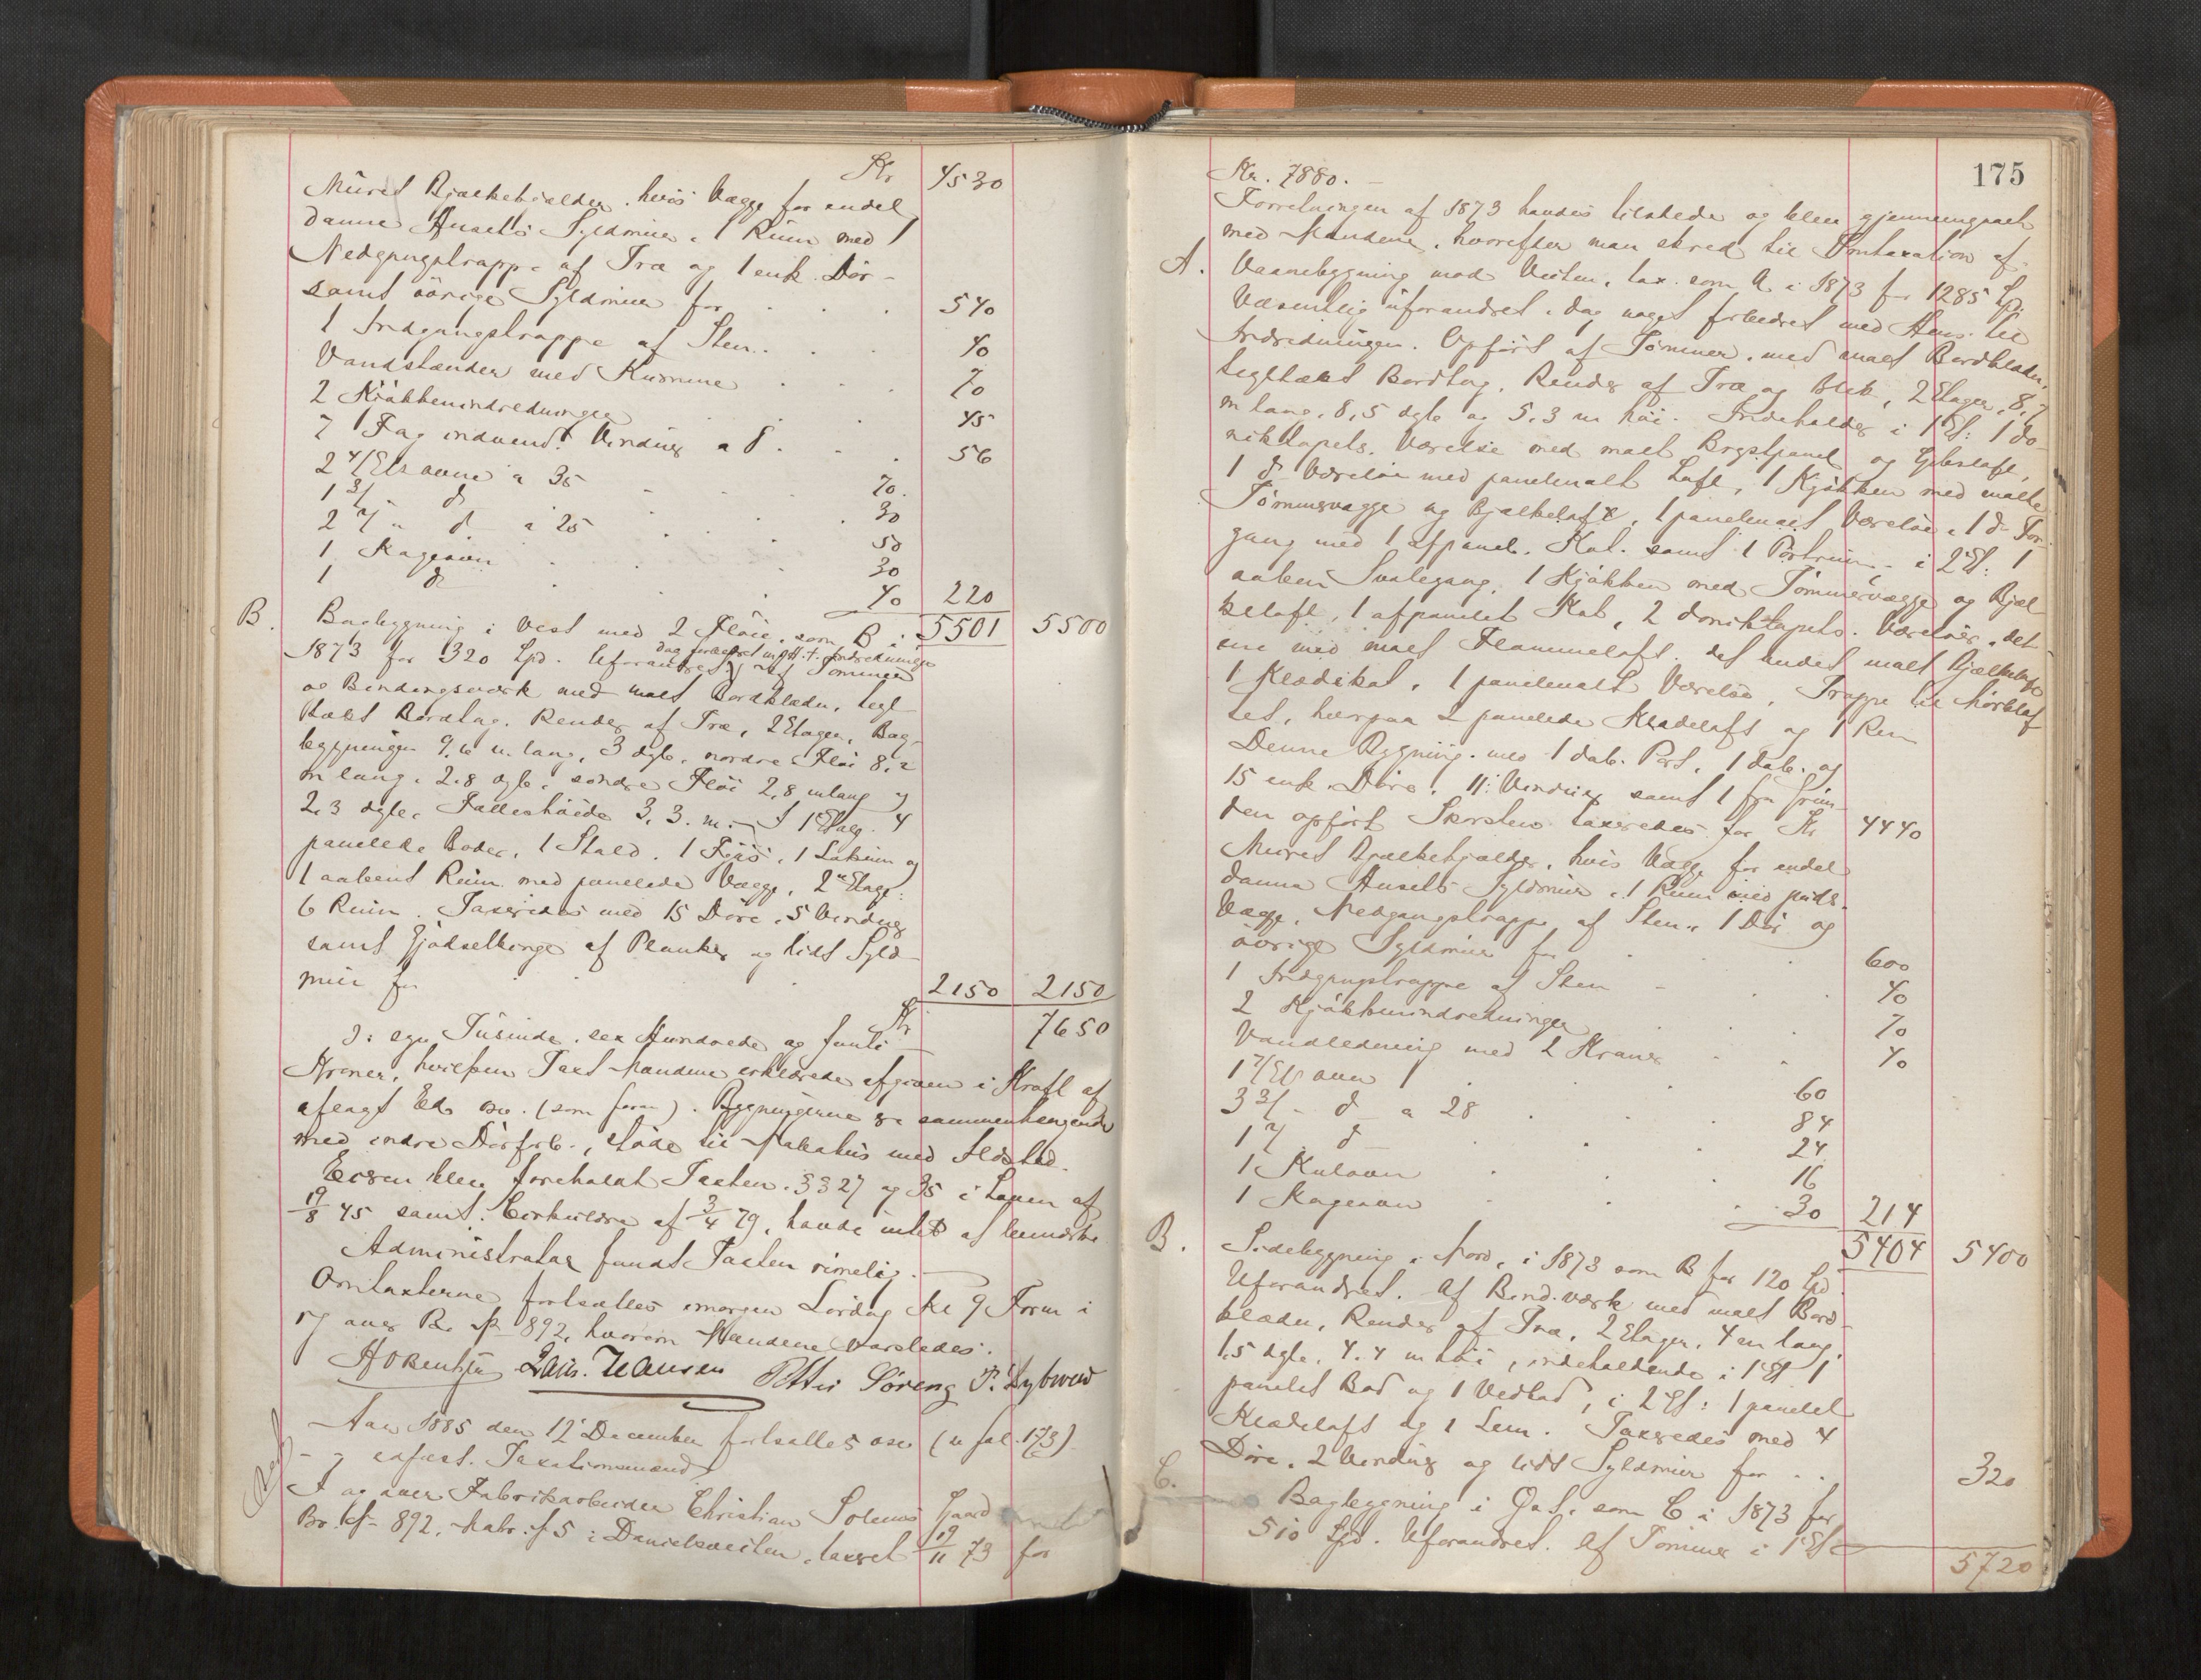 Kr 4530
Muret Bjælkekjelder, hvis Vægge for endel
danne Husets Syldmur, 1 Rum med
Nedgangstrappe af Træ og 1 enk. Dør
samt øvrige Syldmur for . . . 540
1 Indgangstrappe af Sten . . . 40
Vandstænder med Kumme . . . 70
2 Kjøkkenindredninger . . . 45
7 Fag indvend. Vinduer a 8 . . . 56
2 4/Et Ovne a 35 70.
1 3/ - d 30
2 2/ - d a 25 50
1 Kageovn 30
1 d 40 220
5501 5500
B. Bagbygning i Vest med 2 Fløie, som B i
1873 for 320 Spd. Uforandret, af Tømmer
dog forbedret m. H. t. Indredninge
og Bindingsværk med malt Bordklædn, tegl
tækt Bordtag. Render af Træ, 2 Etager, Bag-
bygningen 9,6 m lang, 3 dyb, nordre Fløi 8,2
m lang, 2,8 dyb, søndre Fløi 2,8 m lang og
2,3 dyb, Fælleshøide 3,3 m. I 1 Etage 4
panelede Boder, 1 Stald, 1 Fjøs, 1 Lokum og
1 aabent Rum med panelede Vægge, 2den Etage:
6 Rum. Taxeredes med 15 Døre, 5 Vinduer
samt Gjødselbinge af Planker og lidt Syld-
mur for . . . 2150 2150
Kr 7650
ɔ: syv Tusinde, sex Hundrede og femti
Kroner, hvilken Taxt Mændene erklærede afgiven i Kraft af
aflagt Ed osv. (som foran). Bygningerne er sammenhængende
med indre Dørforb., støde til Nabohus med Ildsted.
Eieren blev foreholdt Taxten, §§ 27 og 35 i Loven af
19/8 45 samt Cirkulære af 3/4 79, havde intet at bemærke.
Administrator fandt Taxten rimelig.
Omtaxterne fortsættes imorgen Lørdag Kl 9 Form i
og over Br. № 892, hvorom Mændene varsledes.
Hans Hansen Petter Søreng P. Dybwad
Aar 1885 den 12 December fortsattes osv (v. fol. 173)
- 7 Taxationsmænd
I og over Fabrikarbeider Christian Solems Gaard
Br. № 892, Matr. № 5 i Danielsveiten, taxeret 19/11 73 for
175
Kr. 7880. -
Forretningen af 1873 havdes tilstede og blev gjennemgaaet
med Mændene, hvorefter man skred til Omtaxation af
A. Vaanebygning mod Veiten, tax. som A i 1873 for 1285 Spd.
Væsentlig uforandret, dog noget forbedret med Hens. til
Indredningen. Opført af Tømmer, med malt Bordklædn,
tegltækt Bordtag, Render af Træ og Blik, 2 Etager, 8,7
m lang, 8,5 dyb og 5,3 m høi. Indeholder i 1 Et: 1 do-
niktapets. Værelse med malt Brystpanel og Gibsloft,
1 d Værelse med panelmalt Loft, 1 Kjøkken med malte
Tømmervægge og Bjælkeloft, 1 panelmalt Værelse, 1 d For-
gang med 1 afpanel. Kot. samt 1 Portrum, i 2 Et: 1
aaben Svalegang, 1 Kjøkken med Tømmervægge og Bjæl-
keloft, 1 afpanelet Kot, 2 doniktapets. Værelser, det
ene med malt Flammeloft, det andet malt Bjælkeloft
1 Klædekot, 1 panelmalt Værelse, Trappe til Mørklof
tet, hvorpaa 2 panelede Klædeloft og 1 Rum
Denne Bygning med 1 dob. Port, 1 dob. og
15 enk. Døre, 11 Vinduer samt 1 fra Grun-
den opført Skorsten taxeredes for Kr 4440
Muret Bjælkekjelder, hvis Vægge for endel
danne Husets Syldmur, 1 Rum med puds.
Vægge, Nedgangstrappe af Sten, 1 Dør og
øvrige Syldmur for . . . 600
1 Indgangstrappe af Sten - . . 40
2 Kjøkkenindredninger . . . 70
Vandledning med 2 Kraner . . . 40
1 4/Et Ovn 60
3 3/ - d a 28 84
1 2/ d 24
1 Kulovn 16
1 Kageovn 30 214
5404 5400
B. Sidebygning i Nord, i 1873 som B for 120 Spd.
Uforandret. Af Bind.værk med malt Bord-
klædn, Render af Træ, 2 Etager, 4 m lang,
1,5 dyb, 4,4 m høi, indeholdende i 1 Et 1
panelet Bod og 1 Vedbod, i 2 Et: 1 panelet
Klædeloft og 1 Lem. Taxeredes med 4
Døre, 2 Vinduer og lidt Syldmur for . . 320
C. Bagbygning i Øst, som C i 1873 for
510 Spd. Uforandret. Af Tømmer i 1 Et
5720